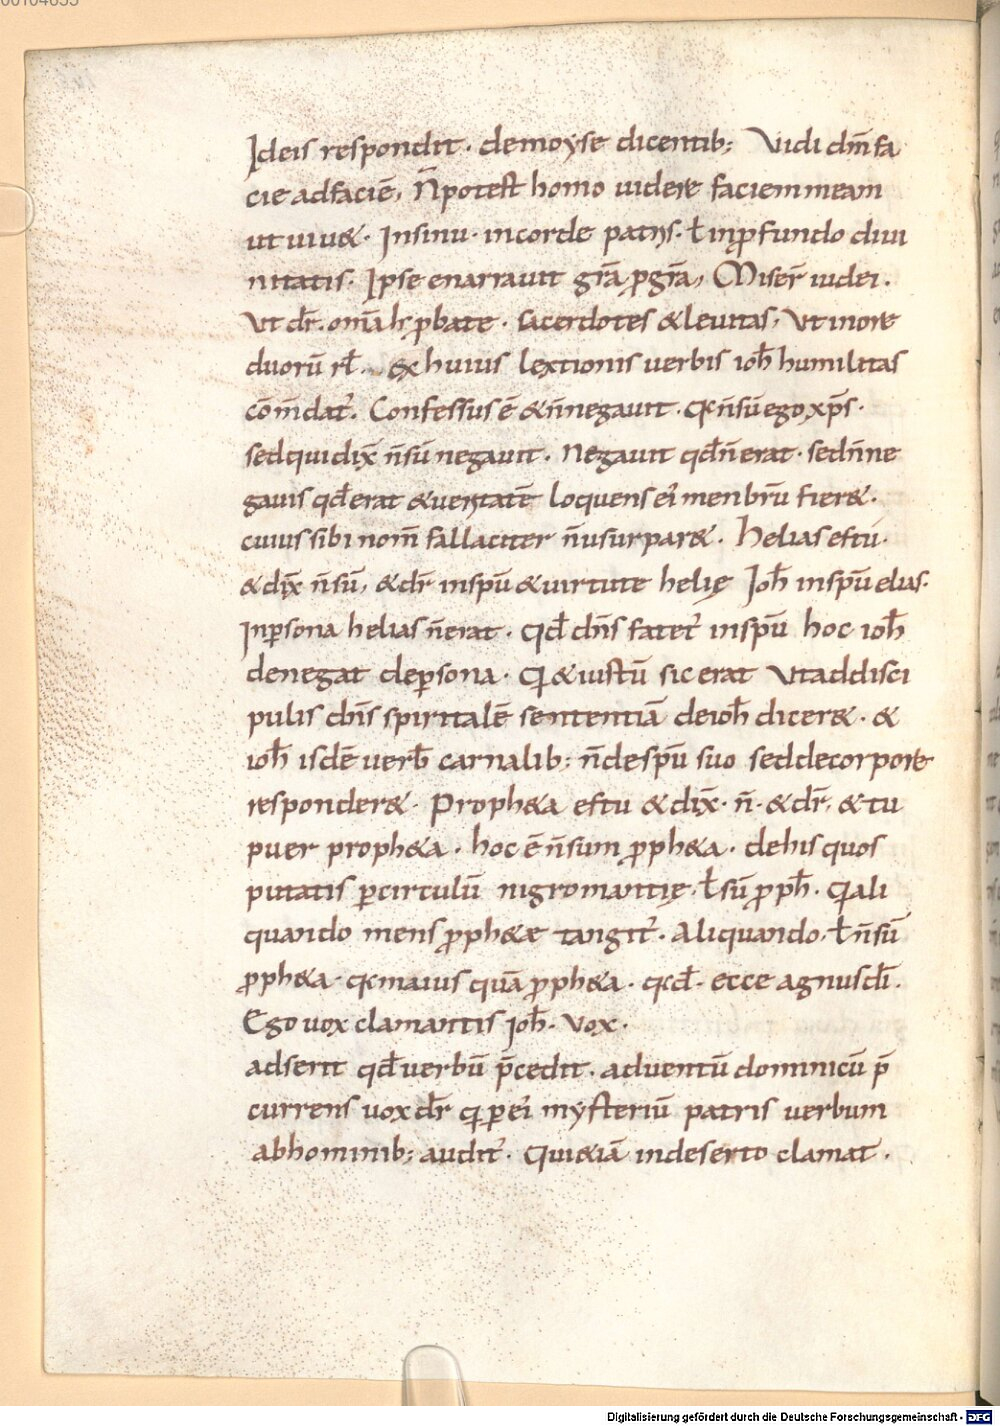 00104633
Ideis respondit · demoyse dicentib; Vidi dm̄ fa
cie adfaciē, N̄ potest homo uidere faciem meam
ut uiu&· In sinu · incorde patris · ł in ꝓfundo diui
nitatis · Ipse enarrauit grā ꝓ grā, Miser̄ iudei ·
Vt dr̄ · omīa ł ꝓbate · sacerdotes & leuitas, Vt more
duorū rł · ex huius lextionis uerbis ioh̄ humilitas
cōm̄dat᷑ · Confessus ē & n̄ negauit · qꝛ n̄ sū ego xp̄s ·
sed qui dix̄ n̄ sū negauit · Negauit qd̄ n̄ erat · sed n̄ ne
gauis qd̄ erat & ueritatē loquens ei᷑ menbrū fier& ·
cuius sibi nom̄ fallaciter n̄ usurpar& · Helias es tu ·
& dix̄ n̄ sū, & dr̄ in sp̄u & uirtute helię Ioh̄ in sp̄u elias ·
In ꝑsona helias n̄ erat · Qd̄ dn̄s fatet᷑ in sp̄u hoc ioh̄
denegat de ꝑsona · Q & iustū sic erat Vt ad disci
pulis dn̄s spiritalē sententiā de ioh̄ dicer& · &
ioh̄ isdē uerb̄ carnalib; n̄ de sp̄u suo sed de corpore
responder& · Proph&a es tu & dix̄ · n̄ · & dr̄, & tu
puer proph&a · hoc ē n̄ sum ꝓph&a · de his quos
putatis ꝑ circulū nigromantię · ł sū ꝓph̄ · Q ali
quando mens ꝓph&æ tangit᷑ · Aliquando, ł n̄ sū
ꝓph&a · qꝛ maius quā ꝓph&a · qꝛ d̄ · ecce agnus dī ·
Ego uox clamantis Ioh̄ · Vox ·
adserit qd̄ uerbū p̄cedit · aduentū dominicū p̄
currens uox dr̄ q ꝑ ei᷑ mysteriū patris uerbum
ab hominib; audit᷑ · Qui &iā in deserto clamat ·
Digitalisierung gefördert durch die Deutsche Forschungsgemeinschaft - DFG